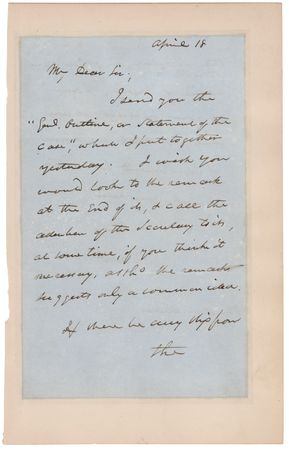 April 18
My Dear Sir,
I send you the
"Genl. Outline, or Statement of the
Case", which I put together
yesterday. I wish you
would look to the remark
at the End of it, & call the
attention of the Secretary to it,
at some time, if you think it
necessary, altho the remark
suggests only a common idea.
If there be any
the